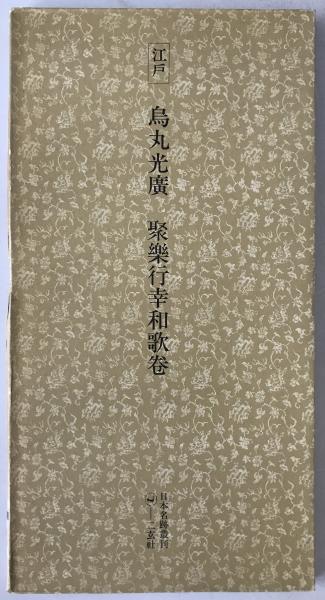 江戸
烏丸光廣 聚樂行幸和歌卷
日本名跡叢刊
二玄社